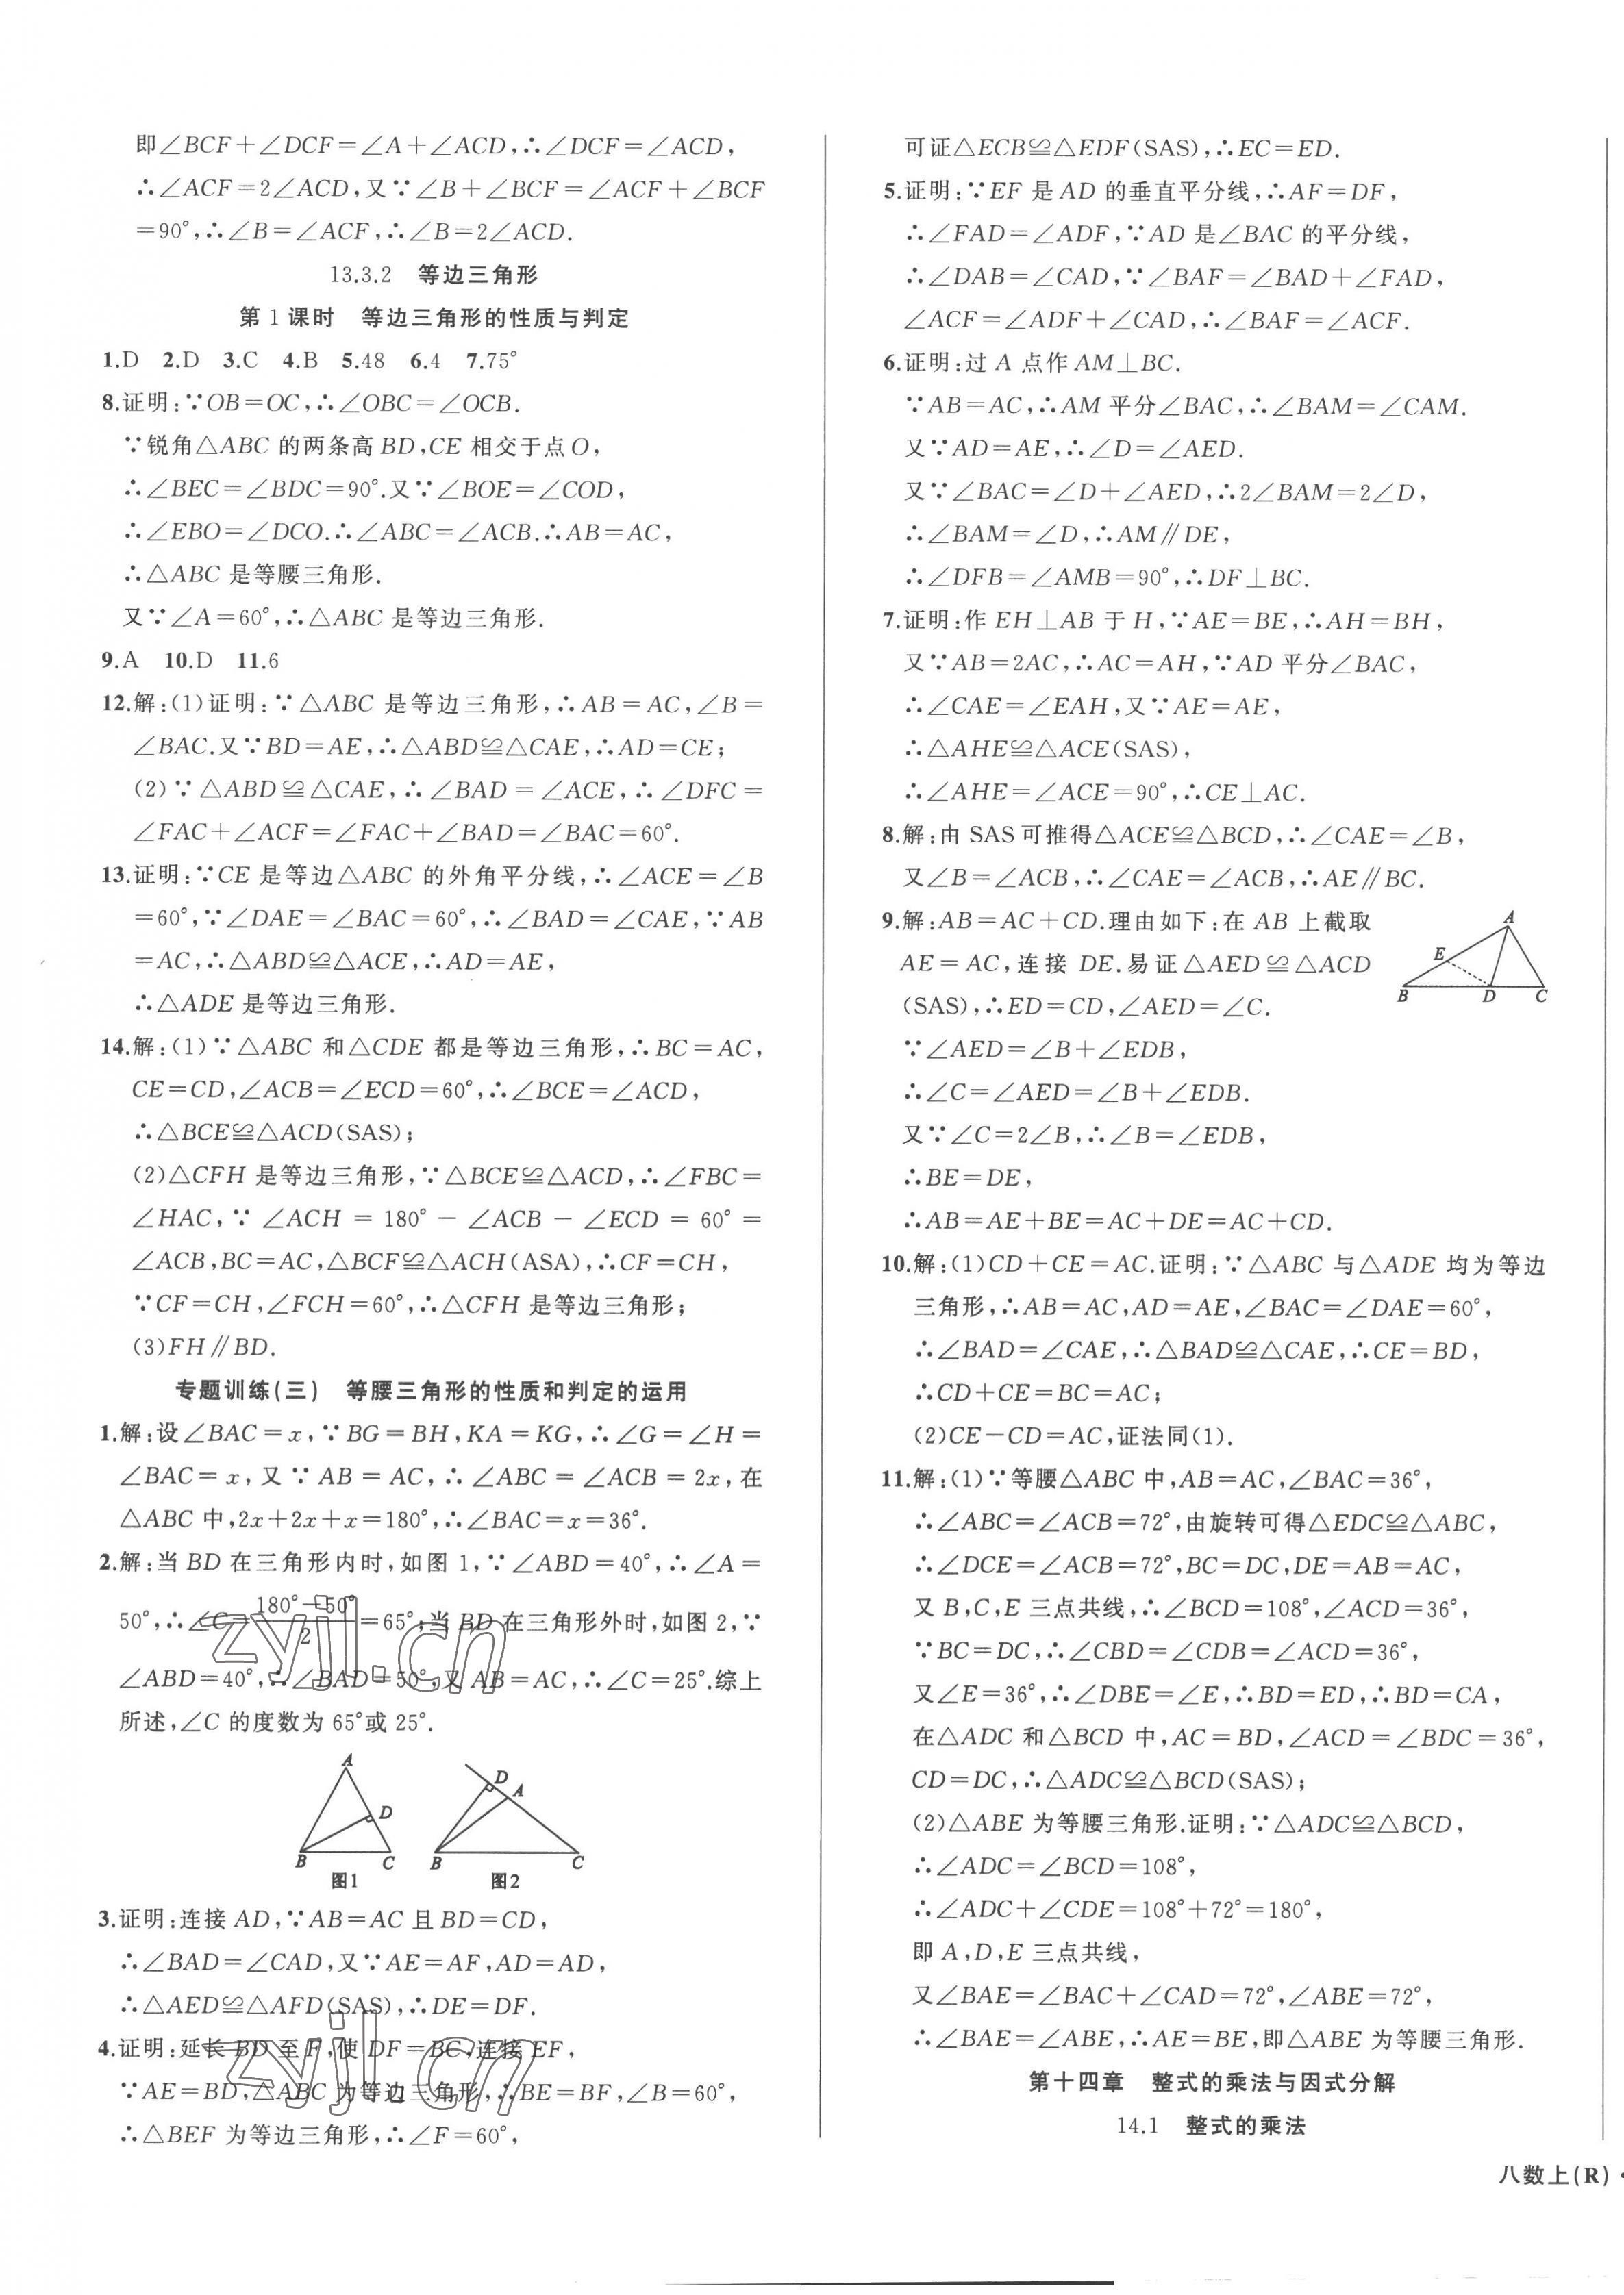 即∠BCF+∠DCF=∠A+∠ACD,∴∠DCF=∠ACD,
∴∠ACF=2∠ACD,又∵∠B+∠BCF=∠ACF+∠BCF
=90°,∴∠B=∠ACF,∴∠B=2∠ACD.
13.3.2 等边三角形
第1课时 等边三角形的性质与判定
1.D 2.D 3.C 4.B 5.48 6.4 7.75°
8.证明:∵OB=OC,∴∠OBC=∠OCB.
∵锐角△ABC的两条高BD,CE相交于点O,
∴∠BEC=∠BDC=90°.又∵∠BOE=∠COD,
∴∠EBO=∠DCO.∴∠ABC=∠ACB.∴AB=AC,
∴△ABC是等腰三角形.
又∵∠A=60°,∴△ABC是等边三角形.
9.A 10.D 11.6
12.解:(1)证明:∵△ABC是等边三角形,∴AB=AC,∠B=
∠BAC.又∵BD=AE,∴△ABD≌△CAE,∴AD=CE;
(2)∵△ABD≌△CAE,∴∠BAD=∠ACE,∴∠DFC=
∠FAC+∠ACF=∠FAC+∠BAD=∠BAC=60°.
13.证明:∵CE是等边△ABC的外角平分线,∴∠ACE=∠B
=60°,∵∠DAE=∠BAC=60°,∴∠BAD=∠CAE,∵AB
=AC,∴△ABD≌△ACE,∴AD=AE,
∴△ADE是等边三角形.
14.解:(1)∵△ABC和△CDE都是等边三角形,∴BC=AC,
CE=CD,∠ACB=∠ECD=60°,∴∠BCE=∠ACD,
∴△BCE≌△ACD(SAS);
(2)△CFH是等边三角形,∵△BCE≌△ACD,∴∠FBC=
∠HAC,∵∠ACH=180°-∠ACB-∠ECD=60°=
∠ACB,BC=AC,△BCF≌△ACH(ASA),∴CF=CH,
∵CF=CH,∠FCH=60°,∴△CFH是等边三角形;
(3)FH∥BD.
专题训练(三) 等腰三角形的性质和判定的运用
1.解:设∠BAC=x,∵BG=BH,KA=KG,∴∠G=∠H=
∠BAC=x,又∵AB=AC,∴∠ABC=∠ACB=2x,在
△ABC中,2x+2x+x=180°,∴∠BAC=x=36°.
2.解:当BD在三角形内时,如图1,∵∠ABD=40°,∴∠A=
50°,∴∠C=(180°-50°)/2=65°;当BD在三角形外时,如图2,∵
∠ABD=40°,∴∠BAD=50°,又AB=AC,∴∠C=25°.综上
所述,∠C的度数为65°或25°.
A D B C
图1
D A B C
图2
3.证明:连接AD,∵AB=AC且BD=CD,
∴∠BAD=∠CAD,又∵AE=AF,AD=AD,
∴△AED≌△AFD(SAS),∴DE=DF.
4.证明:延长BD至F,使DF=BC,连接EF,
∵AE=BD,△ABC为等边三角形,∴BE=BF,∠B=60°,
∴△BEF为等边三角形,∴∠F=60°,
zyjl.cn
zyjl.cn
可证△ECB≌△EDF(SAS),∴EC=ED.
5.证明:∵EF是AD的垂直平分线,∴AF=DF,
∴∠FAD=∠ADF,∵AD是∠BAC的平分线,
∴∠DAB=∠CAD,∵∠BAF=∠BAD+∠FAD,
∠ACF=∠ADF+∠CAD,∴∠BAF=∠ACF.
6.证明:过A点作AM⊥BC.
∵AB=AC,∴AM平分∠BAC,∴∠BAM=∠CAM.
又∵AD=AE,∴∠D=∠AED.
又∵∠BAC=∠D+∠AED,∴2∠BAM=2∠D,
∴∠BAM=∠D,∴AM∥DE,
∴∠DFB=∠AMB=90°,∴DF⊥BC.
7.证明:作EH⊥AB于H,∵AE=BE,∴AH=BH,
又∵AB=2AC,∴AC=AH,∵AD平分∠BAC,
∴∠CAE=∠EAH,又∵AE=AE,
∴△AHE≌△ACE(SAS),
∴∠AHE=∠ACE=90°,∴CE⊥AC.
8.解:由SAS可推得△ACE≌△BCD,∴∠CAE=∠B,
又∠B=∠ACB,∴∠CAE=∠ACB,∴AE∥BC.
9.解:AB=AC+CD.理由如下:在AB上截取
AE=AC,连接DE.易证△AED≌△ACD
(SAS),∴ED=CD,∠AED=∠C.
A E B D C
∵∠AED=∠B+∠EDB,
∴∠C=∠AED=∠B+∠EDB.
又∵∠C=2∠B,∴∠B=∠EDB,
∴BE=DE,
∴AB=AE+BE=AC+DE=AC+CD.
10.解:(1)CD+CE=AC.证明:∵△ABC与△ADE均为等边
三角形,∴AB=AC,AD=AE,∠BAC=∠DAE=60°,
∴∠BAD=∠CAE,∴△BAD≌△CAE,∴CE=BD,
∴CD+CE=BC=AC;
(2)CE-CD=AC,证法同(1).
11.解:(1)∵等腰△ABC中,AB=AC,∠BAC=36°,
∴∠ABC=∠ACB=72°,由旋转可得△EDC≌△ABC,
∴∠DCE=∠ACB=72°,BC=DC,DE=AB=AC,
又B,C,E三点共线,∴∠BCD=108°,∠ACD=36°,
∵BC=DC,∴∠CBD=∠CDB=∠ACD=36°,
又∠E=36°,∴∠DBE=∠E,∴BD=ED,∴BD=CA,
在△ADC和△BCD中,AC=BD,∠ACD=∠BDC=36°,
CD=DC,∴△ADC≌△BCD(SAS);
(2)△ABE为等腰三角形.证明:∵△ADC≌△BCD,
∴∠ADC=∠BCD=108°,
∴∠ADC+∠CDE=108°+72°=180°,
即A,D,E三点共线,
又∠BAE=∠BAC+∠CAD=72°,∠ABE=72°,
∴∠BAE=∠ABE,∴AE=BE,即△ABE为等腰三角形.
第十四章 整式的乘法与因式分解
14.1 整式的乘法
八数上(R)·